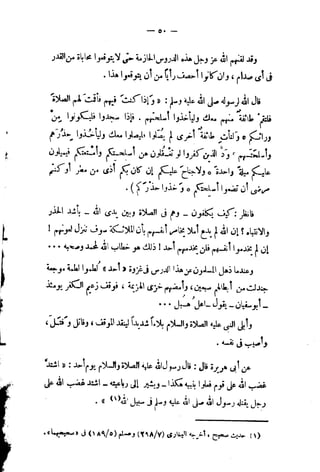 — ٥٠ —
وقد لقنهم الله عز وجل هذه الدروس الحازمة حتى لا يتوقعوا محاباة من القدر
فى أى صدام ، وإن كانوا أحصف رأيا من أن يتوقعوا هذا .
قال الله لرسوله صلى الله عليه وسلم : « وَإِذَا كُنْتَ فِيهِمْ فَأَقَمْتَ لَهُمُ الصَّلَاةَ
فلتقم طائفة منهم معك وليأخذوا أسلحتهم . فإذا سجدوا فليكونوا من
ورائكم ، ولتأت طائفة أخرى لم يصلوا فليصلوا معك وليأخذوا حذرهم
وأسلحتهم ، ودّ الذين كفروا لو تغفلون عن أسلحتكم وأمتعتكم فيميلون
عليكم ميلة واحدة ، ولا جناح عليكم إن كان بكم أذى من مطر أو كنتم
مرضى أن تضعوا أسلحتكم وخذوا حذركم ) .
فانظر : كيف يكلفون – وهم فى الصلاة وبين يدى الله – بأشد الحذر
والانتباه ! إن الله لم يدع أملا يخامر أنفسهم بأن الملائكة سوف تنزل لعونهم !
إن لم يخدموا أنفسهم فلن يخدمهم أحد ! ذلك هو خطاب الله لمحمد وصحبه ...
وعندما ذهل المسلمون عن هذا الدرس فى غزوة « أحد » لطموا لطمة موجعة
جندلت من أبطالهم سبعين ، وأمضهم خزى الهزيمة ، فوقف زعيم الكفر يومئذ
– أبو سفيان – يقول – اعل هبل ...
وأبلى النبى عليه الصلاة والسلام بلاءً شديداً لينقذ الموقف ، وقاتل وقتل ،
وأصيب فى نفسه .
عن أبى هريرة قال : قال رسول الله عليه الصلاة والسلام يوم أحد : « اشتدّ
غضب الله على قوم فعلوا بنبيه هكذا – ويشير إلى رباعيته – اشتد غضب الله على
رجل يقتله رسول الله صلى الله عليه وسلم فى سبيل الله(١) » .
(١) حديث صحيح ، أخرجه البخارى (٢٩٨/٧) ومسلم (١٨٩/٥) فى « صحيحيهما » .